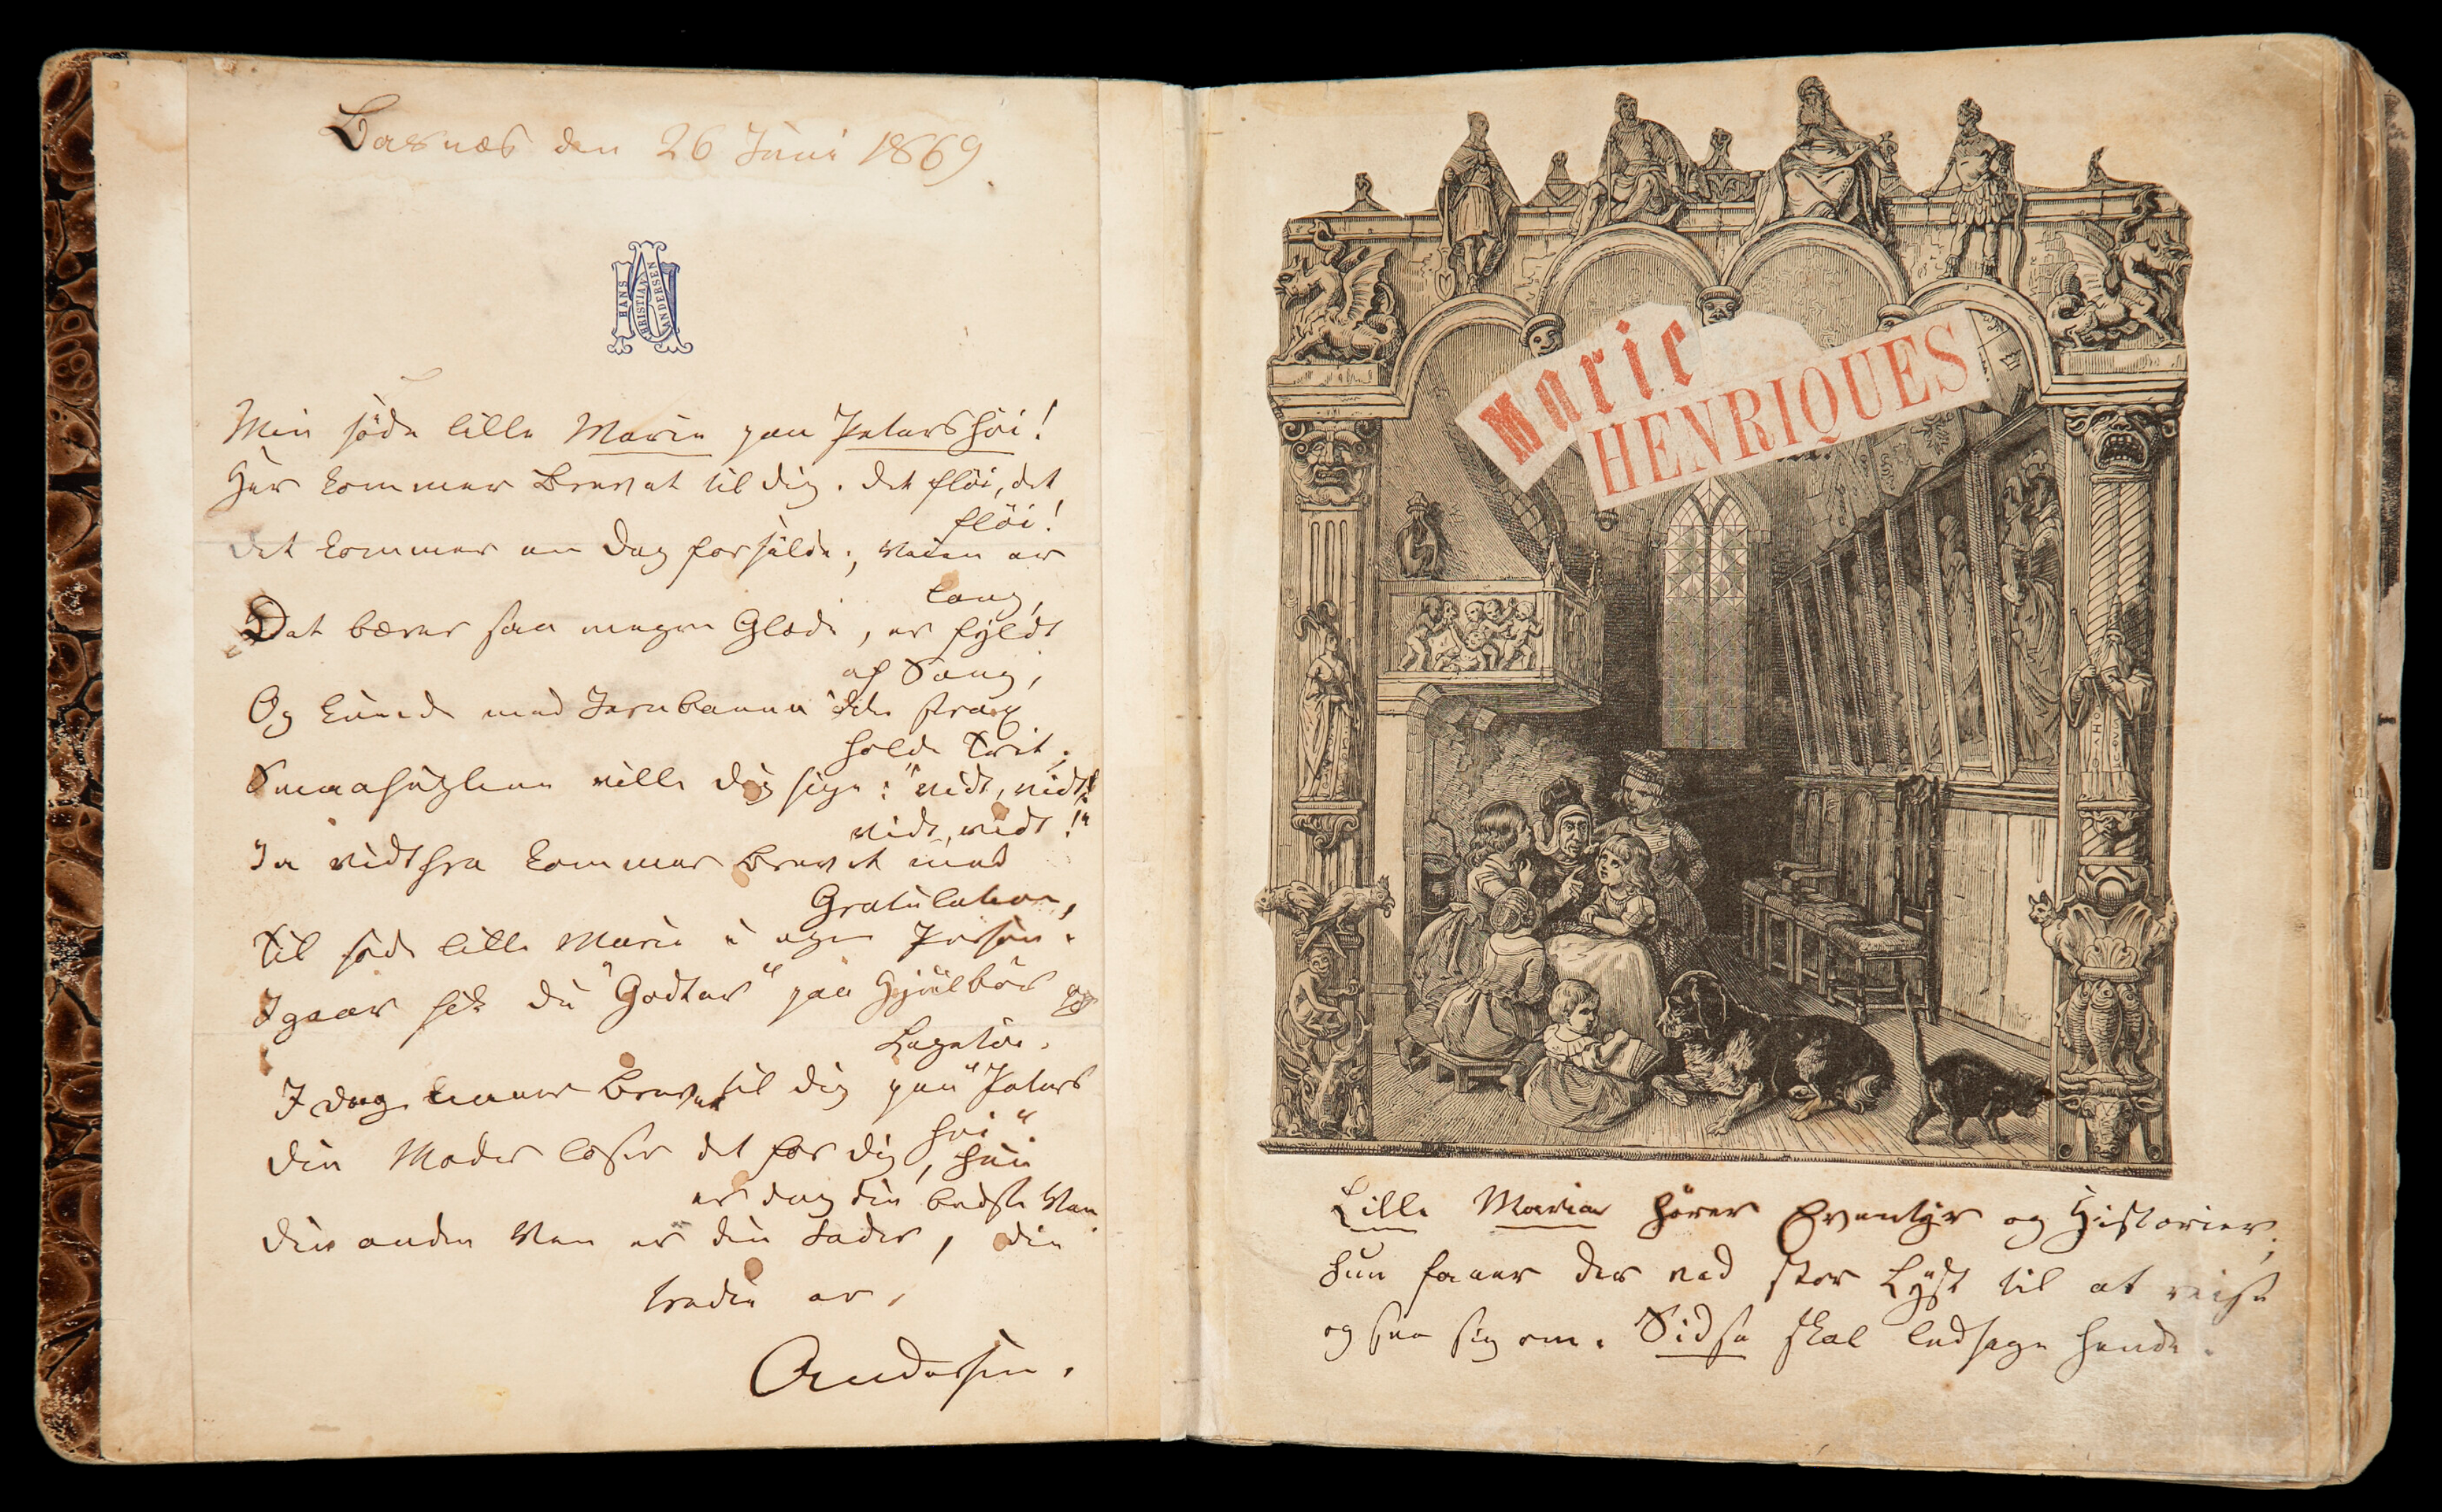 Basnæs den 26 Juni 1869.
HANS
CHRISTIAN
ANDERSEN
Min søde lille Marie paa Petershöi!
Her kommer Brevet til dig. det flöi, det
flöi!
det kommer en Dag forsilde; Veien er
lang,
Det bærer saa megen Glæde, er fyldt
af Sang,
Og kunde med Jernbanen ikke strax
holde Trit;
Smaafuglene ville dig sige: "vidt, vidt!
vidt, vidt!"
Ja vidtfra kommer Brevet med
Gratulation,
Til søde lille Marie i egen Person.
Igaar fik du "Godter" paa Gjælbör og
Legetöi.
I dag kommer Brevet til dig paa "Peters
höi".
Din Moder læser det for dig, hun
er dog din bedste Ven.
Din anden Ven er din Fader, din
tredie er,
Andersen.
Marie
HENRIQUES
Lille Marie hører Eventyr og Historier,
hun faaer der ved stor Lyst til at reise
og see sig om. Sidse skal ledsage hende.